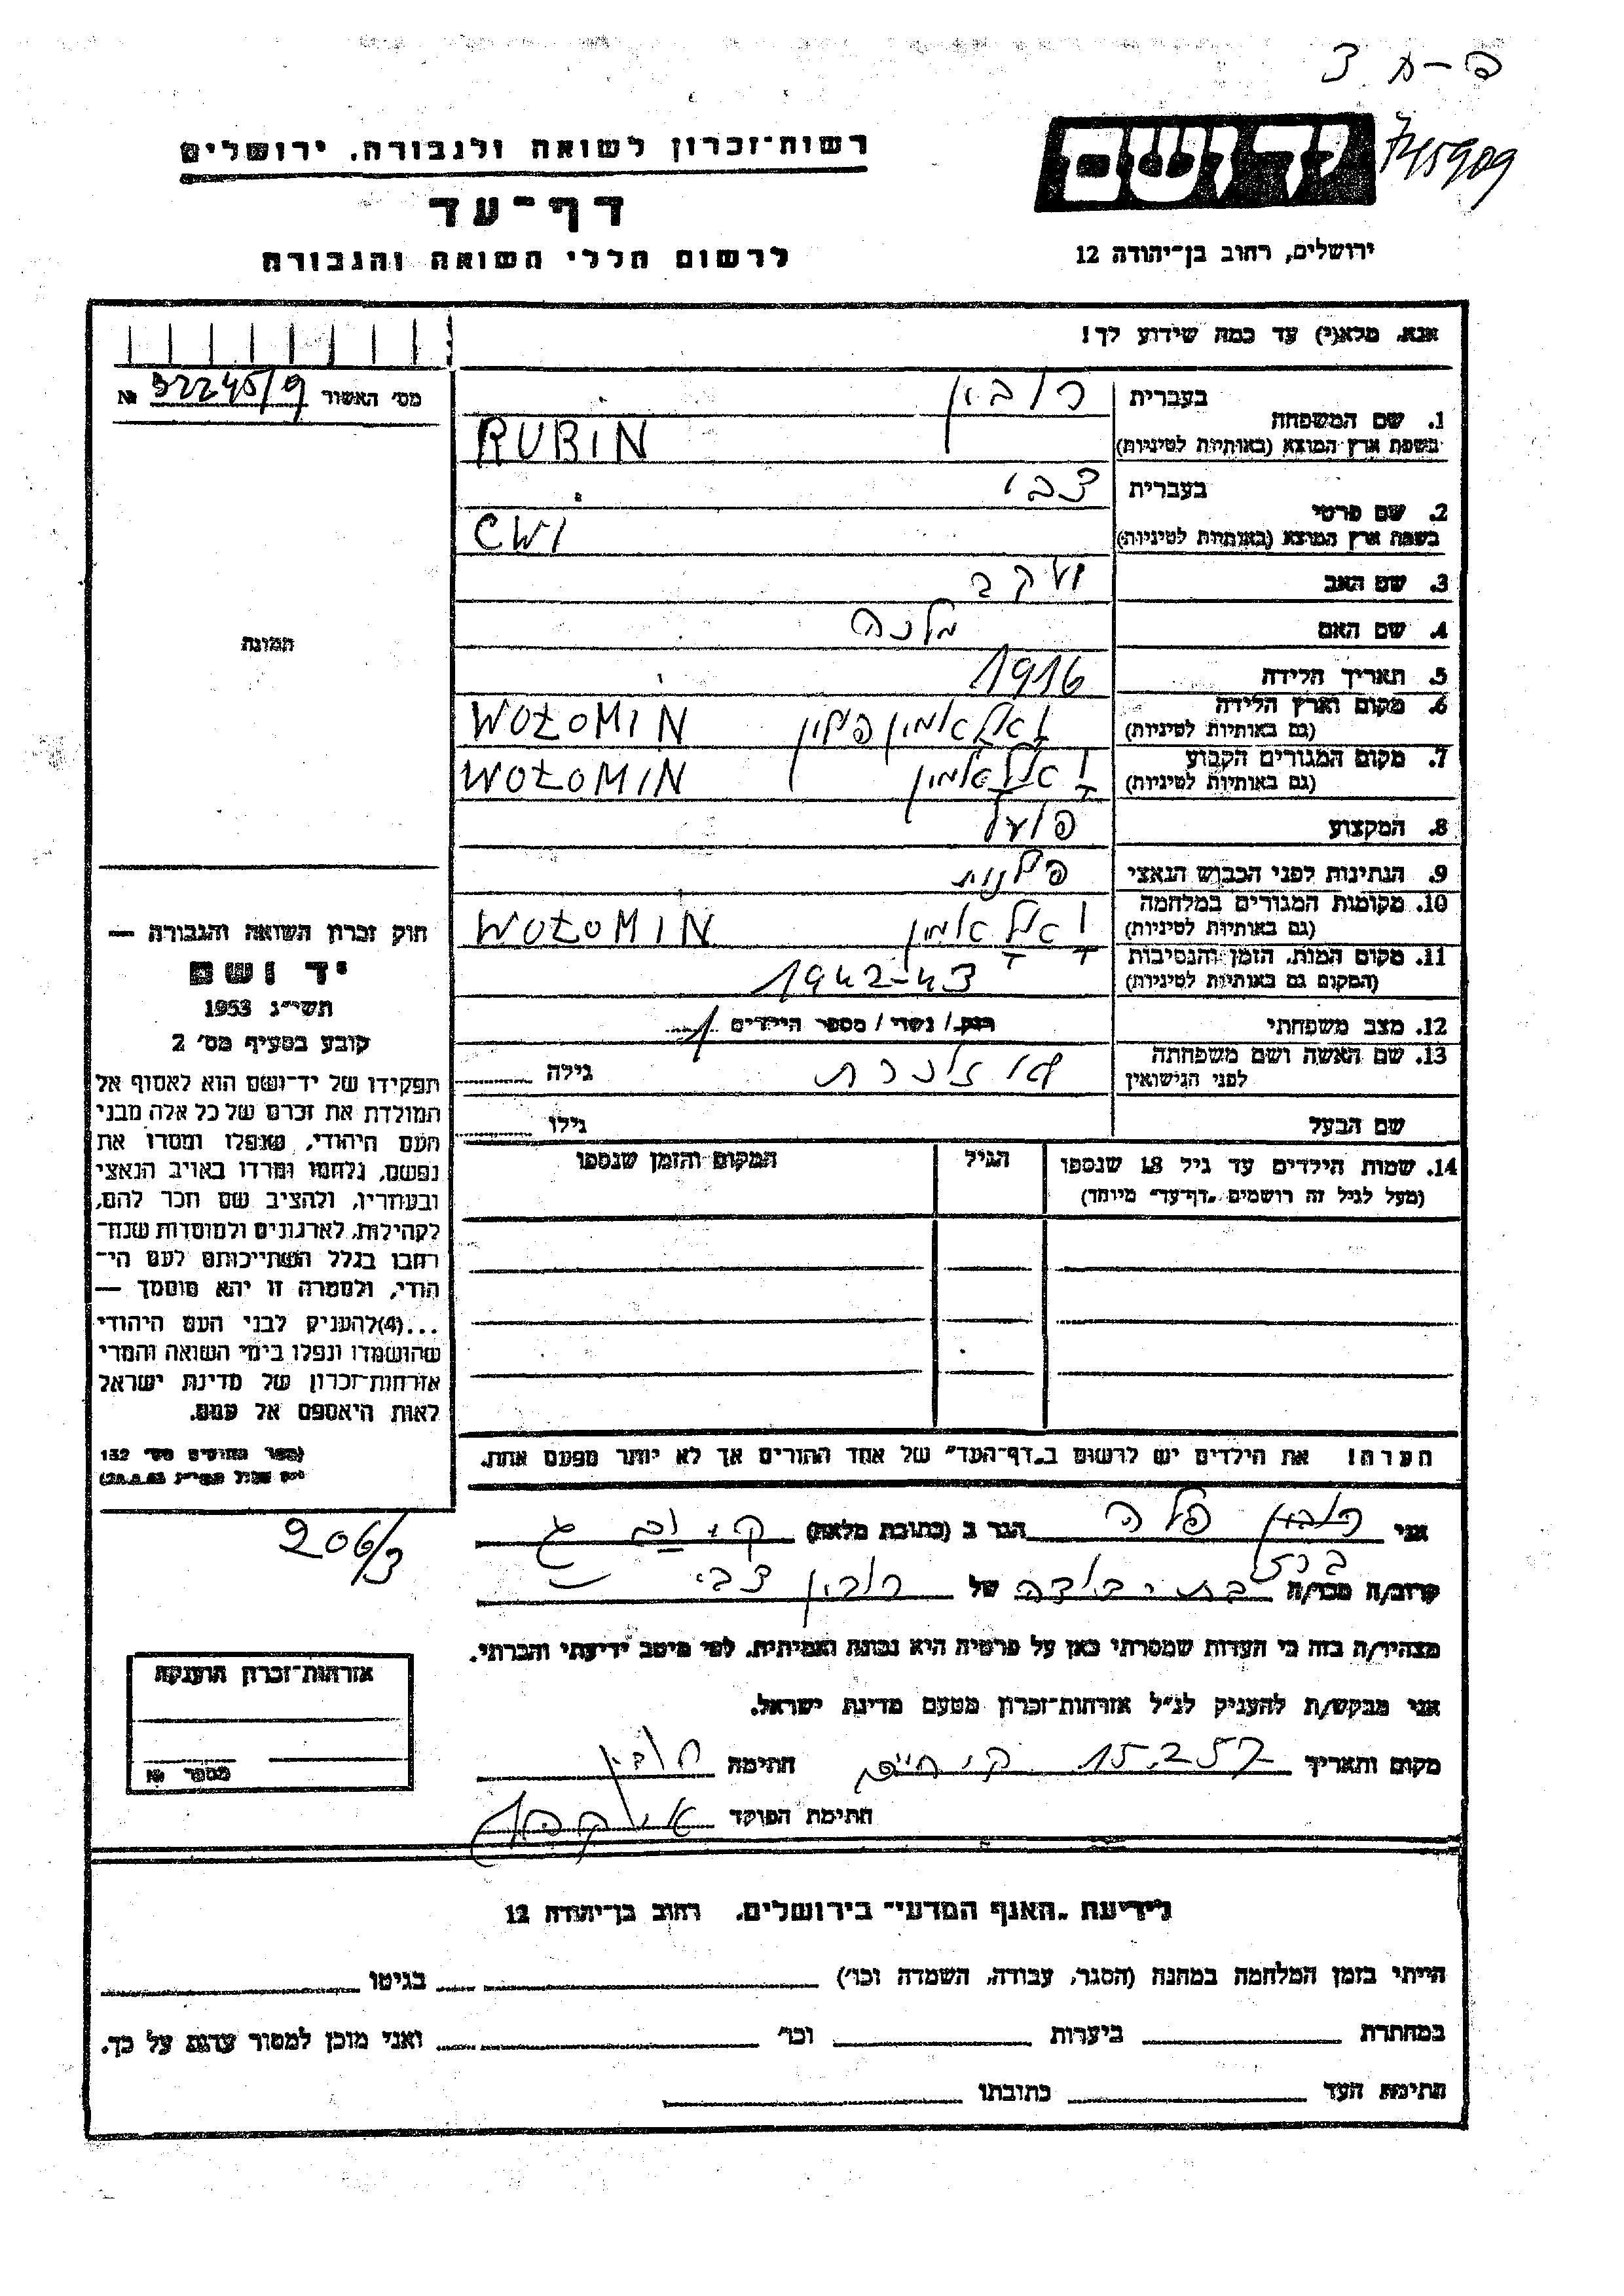 יד ושם
רשות־זכרון לשואה ולגבורה, ירושלים
דף־עד
לרשום חללי השואה והגבורה
ירושלים, רחוב בן־יהודה 12
אנא, מלא(י) עד כמה שידוע לך!
מס׳ האשור № 32245/9
1. שם המשפחה
בעברית רובין
בשפת ארץ המוצא (באותיות לטיניות) RUBIN
2. שם פרטי
בעברית צבי
בשפת ארץ המוצא (באותיות לטיניות) CWI
3. שם האב יעקב
4. שם האם מלכה
5. תאריך הלידה 1916
6. מקום וארץ הלידה
(גם באותיות לטיניות) WOŁOMIN
7. מקום המגורים הקבוע
(גם באותיות לטיניות) WOŁOMIN
8. המקצוע פועל
9. הנתינות לפני הכבוש הנאצי
10. מקומות המגורים במלחמה
(גם באותיות לטיניות) WOŁOMIN
11. מקום המות, הזמן והנסיבות
(המקום גם באותיות לטיניות) 1942-43
12. מצב משפחתי רוק / נשוי / מספר הילדים 1
13. שם האשה ושם משפחתה
לפני הנישואין
גילה
שם הבעל גילו
14. שמות הילדים עד גיל 18 שנספו הגיל המקום והזמן שנספו
(מעל לגיל זה רושמים „דף־עד״ מיוחד)
הערה! את הילדים יש לרשום ב„דף־העד״ של אחד ההורים אך לא יותר מפעם אחת.
תמונה
חוק זכרון השואה והגבורה —
יד ושם
תשי״ג 1953
קובע בסעיף מס׳ 2
תפקידו של יד־ושם הוא לאסוף אל
המולדת את זכרם של כל אלה מבני
העם היהודי, שנפלו ומסרו את
נפשם, נלחמו ומרדו באויב הנאצי
ובעוזריו, ולהציב שם וזכר להם,
לקהילות, לארגונים ולמוסדות שנח־
רבו בגלל השתייכותם לעם הי־
הודי, ולמטרה זו יהא מוסמך —
...(4)להעניק לבני העם היהודי
שהושמדו ונפלו בימי השואה והמרי
אזרחות־זכרון של מדינת ישראל
לאות היאספם אל עמם.
(ספר החוקים מס׳ 132
206/3
אני רובין הגר ב (כתובת מלאה)
קרוב/ה מכר/ה של רובין צבי
מצהיר/ה בזה כי העדות שמסרתי כאן על פרטיה היא נכונה ואמיתית, לפי מיטב ידיעתי והכרתי.
אני מבקש/ת להעניק לנ״ל אזרחות־זכרון מטעם מדינת ישראל.
מקום ותאריך 15.2.57 חתימה רובין
חתימת הפוקד
אזרחות־זכרון הוענקה
מספר №
לידיעת „האגף המדעי״ בירושלים, רחוב בן־יהודה 12
הייתי בזמן המלחמה במחנה (הסגר, עבודה, השמדה וכו׳) בגיטו
במחתרת ביערות וכו׳ ואני מוכן למסור עדות על כך.
חתימת העד כתובתו